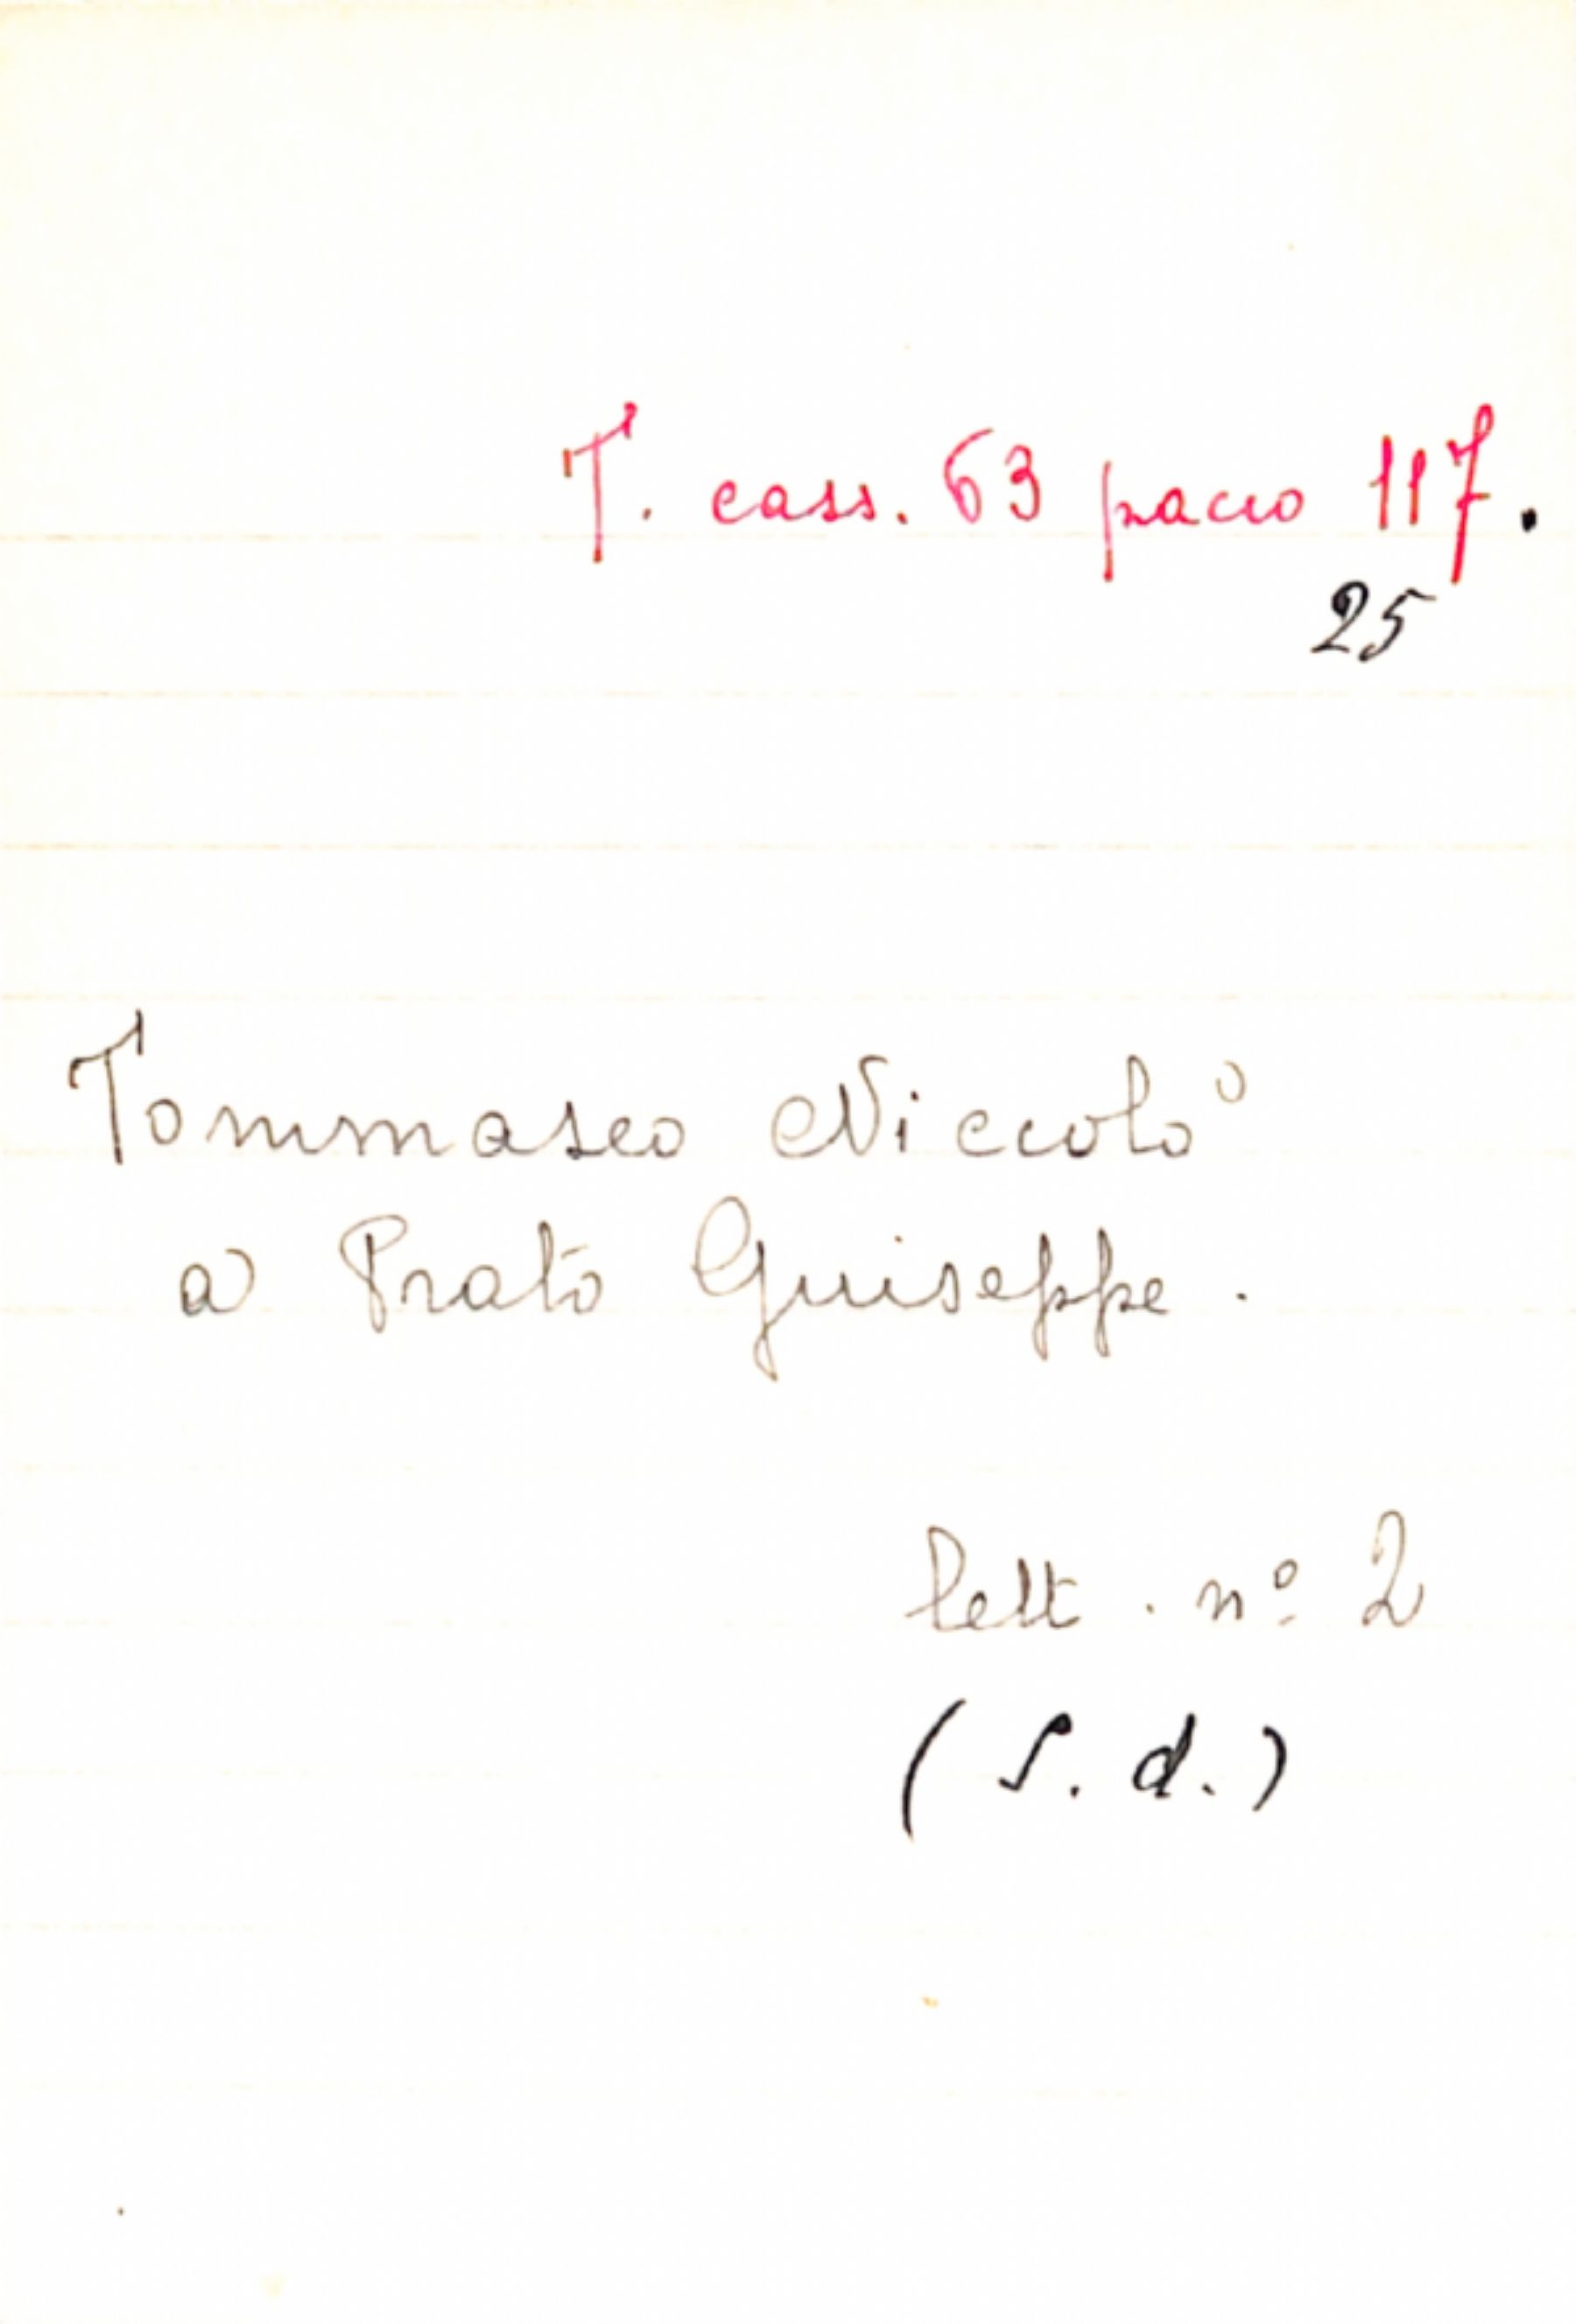 T. cass. 63 pacco 117.
25
Tommaseo Niccolò
a Prato Giuseppe.
lett. nº 2
(S. d.)